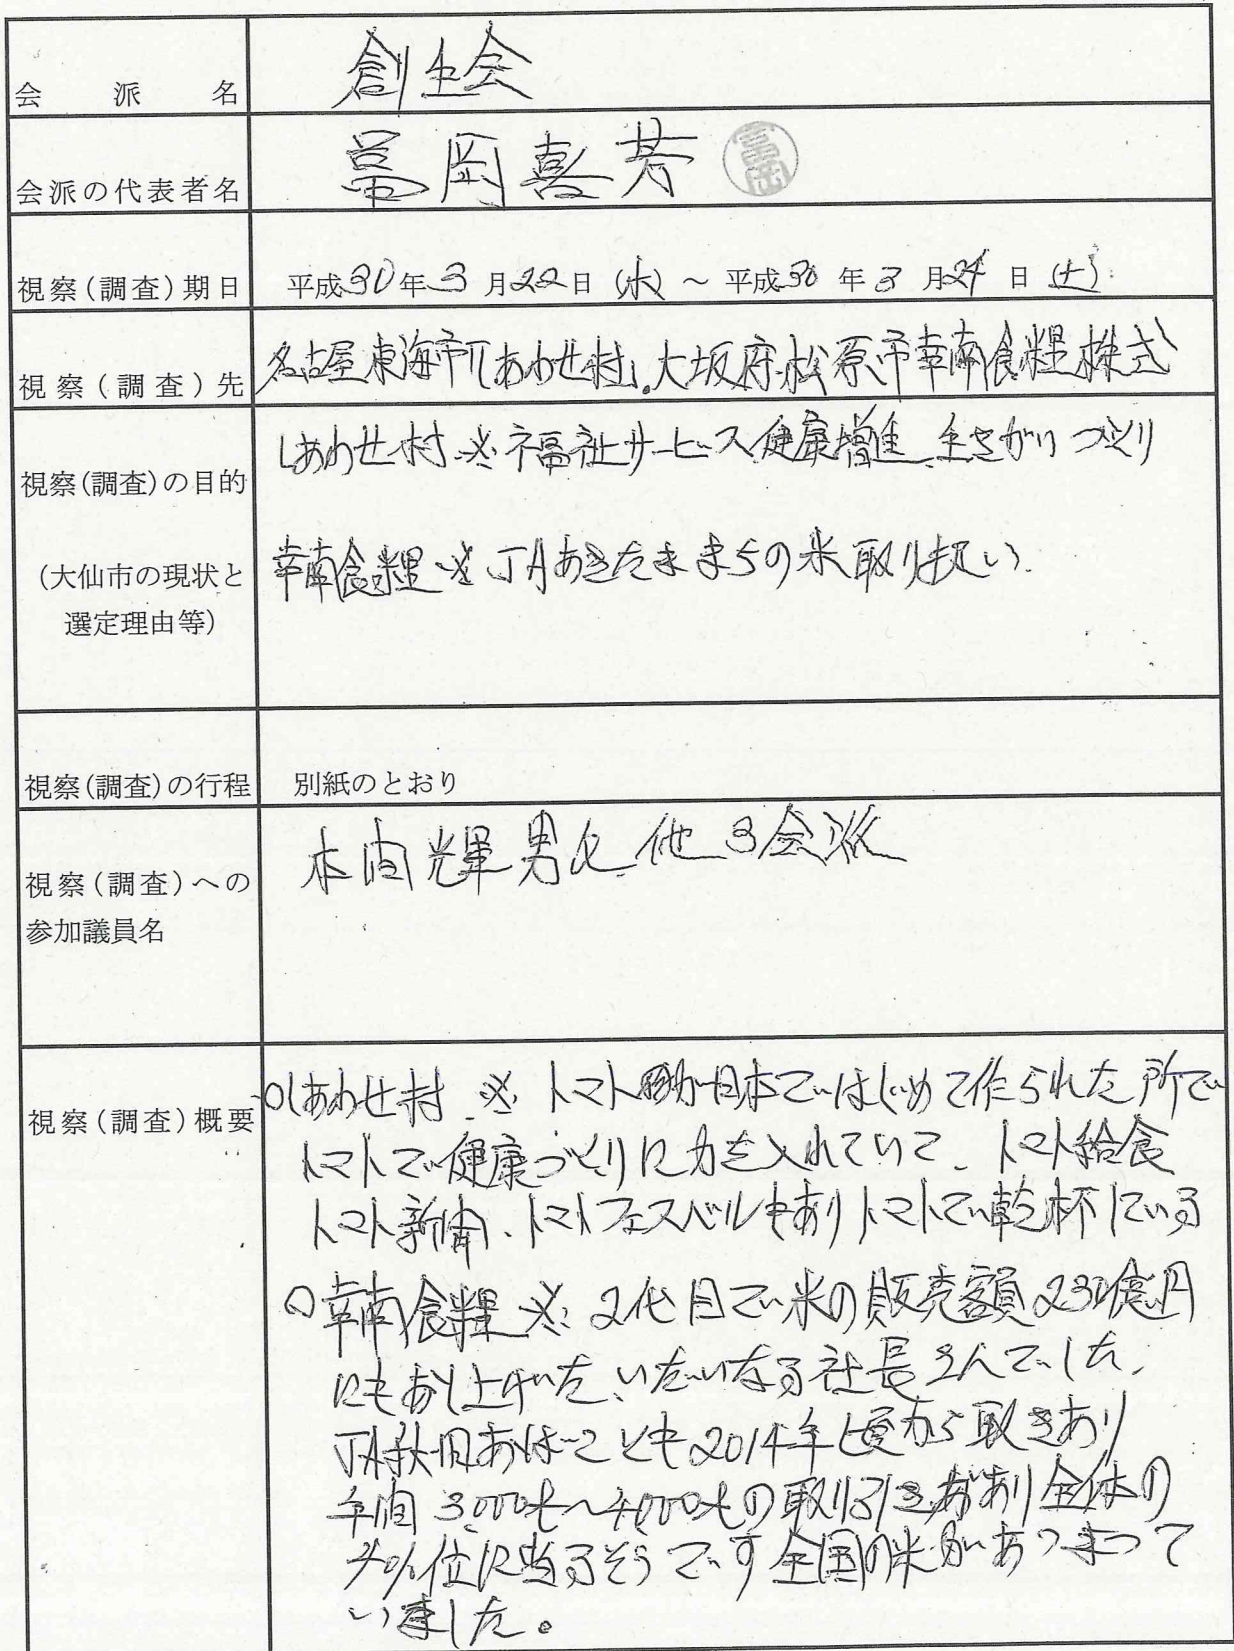 会派名 創生会
会派の代表者名 冨岡喜芳 冨岡
視察(調査)期日 平成30年3月22日(木)～平成30年3月24日(土)
視察(調査)先 名古屋東海市「しあわせ村」、大坂府松原市幸南食糧株式
視察(調査)の目的
(大仙市の現状と
選定理由等)
しあわせ村 ※ 福祉サービス健康増進 生きがいづくり
幸南食糧 ※ JAあきたこまちの米取り扱い
視察(調査)の行程 別紙のとおり
視察(調査)への
参加議員名
本間輝男氏 他3会派
視察(調査)概要
○しあわせ村 ※ トマトが日本ではじめて作られた所で
トマトで健康づくりに力を入れていて、トマト給食
トマト新聞、トマトフェスバルもありトマトで乾杯している
○幸南食糧 ※ 2代目で米の販売額230億円
にもおし上げた、いだいなる社長さんでした。
JA秋田おばことも2014年頃から取きあり
年間3,000t～4,000tの取り引きがあり全体の
%位に当るそうです全国の米があつまって
いました。